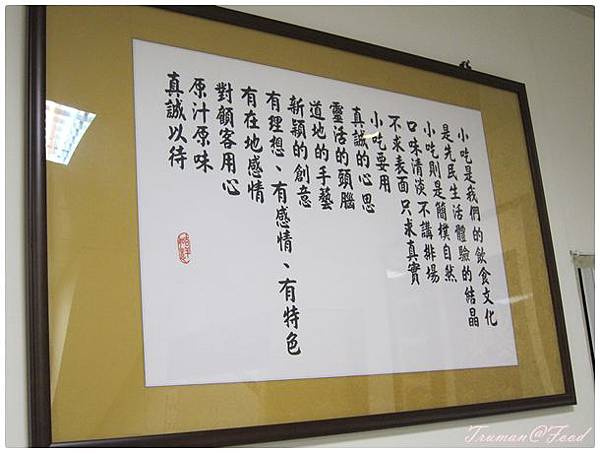 小吃是我們的飲食文化
是先民生活體驗的結晶
小吃則是簡樸自然
口味清淡不講排場
不求表面只求真實
小吃要用
真誠的心思
靈活的頭腦
道地的手藝
新穎的創意
有理想、有感情、有特色
有在地感情
對顧客用心
原汁原味
真誠以待
Truman@Food